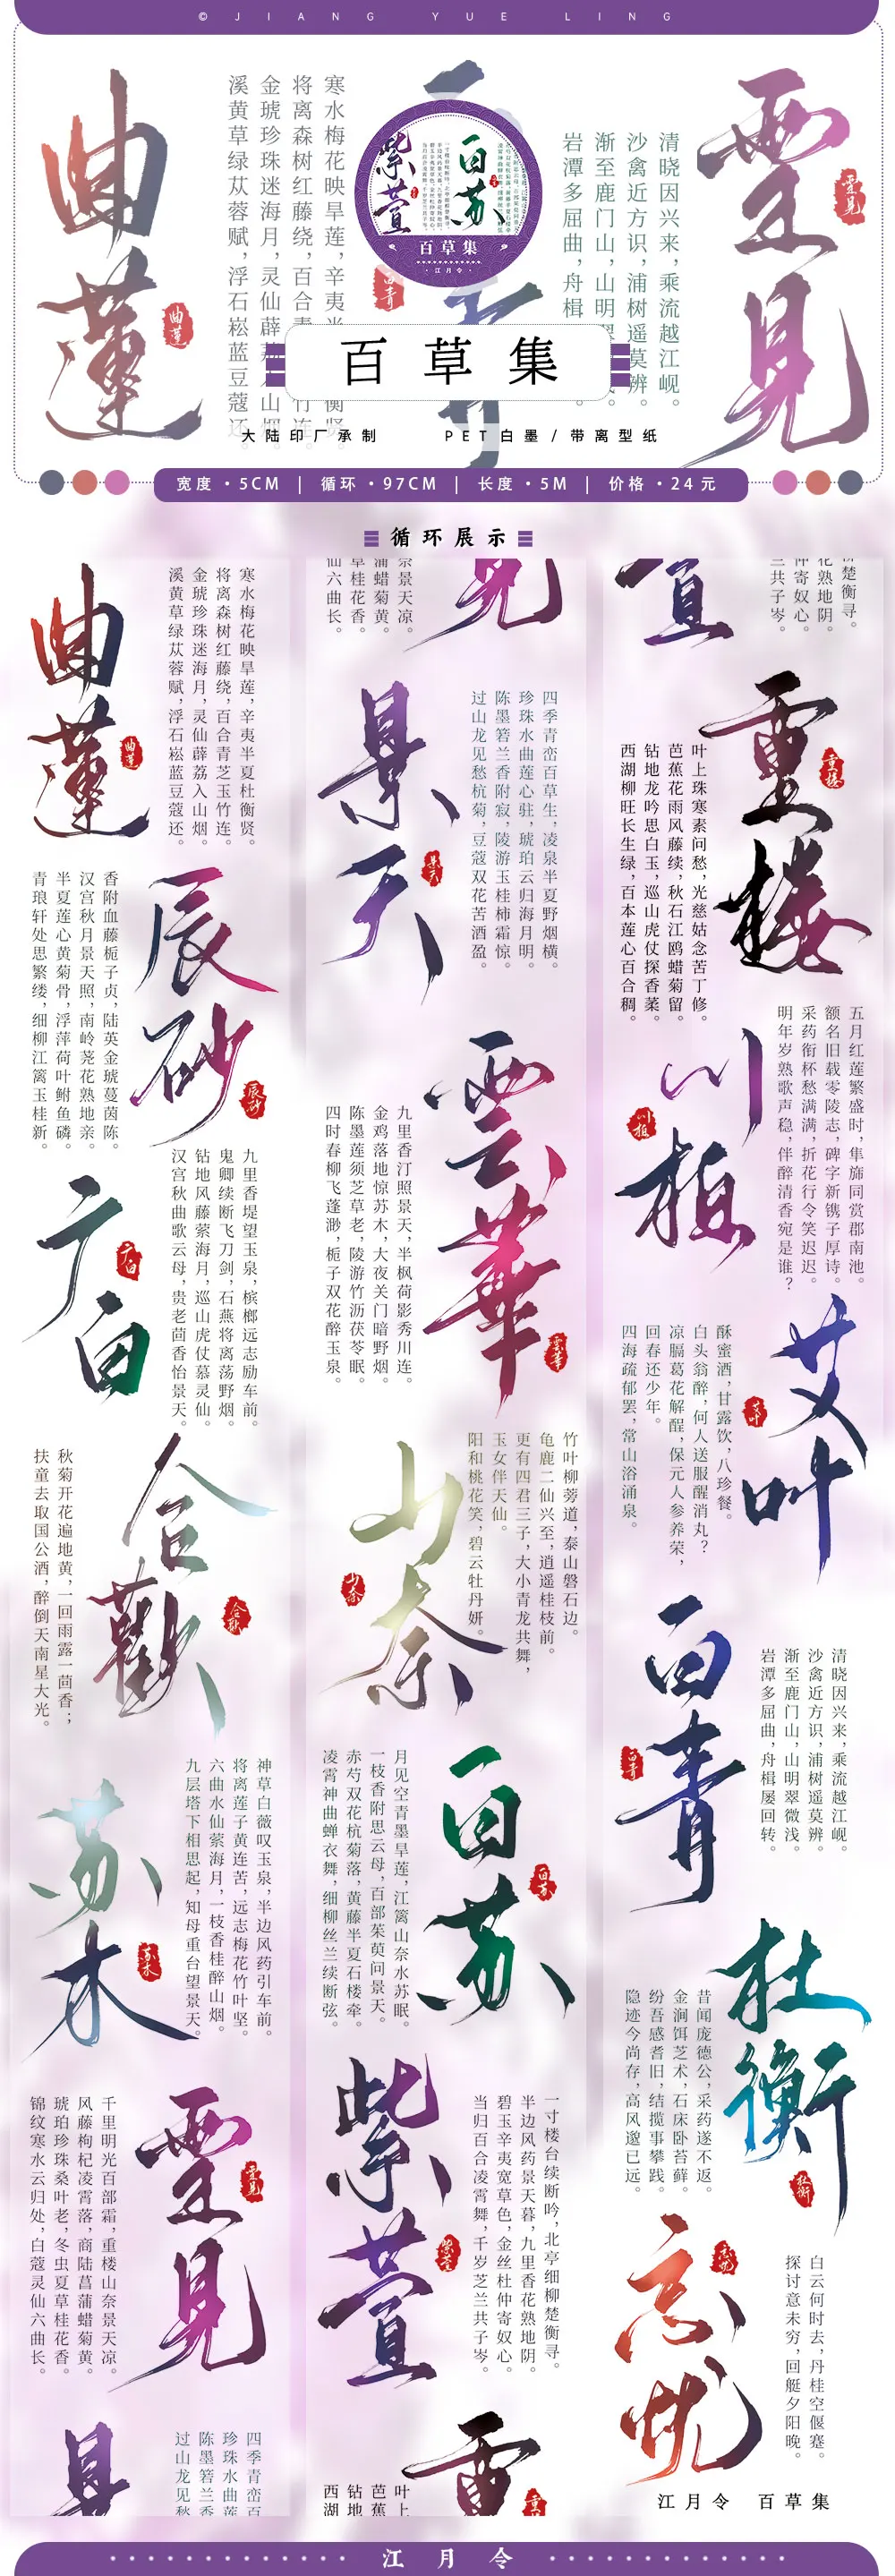 © JIANG YUE LING
曲莲
曲莲
寒水梅花映旱莲，辛夷半
将离森树红藤绕，百合青
金琥珍珠迷海月，灵仙薜
溪黄草绿苁蓉赋，浮石崧蓝豆蔻还
紫萱
百苏
百草集
江月令
百青
清晓因兴来，乘流越江岘。
沙禽近方识，浦树遥莫辨。
渐至鹿门山，山明
岩潭多屈曲，舟楫
靈見
靈見
百草集
大陆印厂承制 PET白墨/带离型纸
宽度·5CM | 循环·97CM | 长度·5M | 价格·24元
循环展示
曲莲
曲莲
寒水梅花映旱莲，辛夷半夏杜衡贤。
将离森树红藤绕，百合青芝玉竹连。
金琥珍珠迷海月，灵仙薜荔入山烟。
溪黄草绿苁蓉赋，浮石崧蓝豆蔻还。
辰砂
辰砂
香附血藤栀子贞，陆英金琥蔓茵陈。
汉宫秋月景天照，南岭荛花熟地亲。
半夏莲心黄菊骨，浮萍荷叶鲋鱼磷。
青琅轩处思繁缕，细柳江篱玉桂新。
广白
广白
九里香堤望玉泉，槟榔远志励车前。
鬼卿续断飞刀剑，石燕将离荡野烟。
钻地风藤萦海月，巡山虎仗慕灵仙。
汉宫秋曲歌云母，贵老茴香怡景天。
合歡
合歡
秋菊开花遍地黄，一回雨露一茴香；
扶童去取国公酒，醉倒天南星大光。
苏木
苏木
神草白薇叹玉泉，半边风药引车前。
将离莲子黄连苦，远志梅花竹叶坚。
六曲水仙萦海月，一枝香桂醉山烟。
九层塔下相思起，知母重台望景天。
靈見
靈見
千里明光百部霜，重楼山奈景天凉。
风藤枸杞凌霄落，商陆菖蒲蜡菊黄。
琥珀珍珠桑叶老，冬虫夏草桂花香。
锦纹寒水云归处，白蔻灵仙六曲长。
景
四季青峦百
珍珠水曲莲
陈墨箬兰香
过山龙见愁
見
奈景天凉。
蒲蜡菊黄。
草桂花香。
仙六曲长。
景天
景天
四季青峦百草生，凌泉半夏野烟横。
珍珠水曲莲心驻，琥珀云归海月明。
陈墨箬兰香附寂，陵游玉桂柿霜惊。
过山龙见愁杭菊，豆蔻双花苦酒盈。
雲華
雲華
九里香汀照景天，半枫荷影秀川连。
金鸡落地惊苏木，大夜关门暗野烟。
陈墨莲须芝草老，陵游竹沥茯苓眠。
四时春柳飞蓬渺，栀子双花醉玉泉。
山奈
山奈
竹叶柳蒡道，泰山磐石边。
龟鹿二仙兴至，逍遥桂枝前。
更有四君三子，大小青龙共舞，
玉女伴天仙。
阳和桃花笑，碧云牡丹妍。
百苏
百苏
月见空青墨旱莲，江篱山奈水苏眠。
一枝香附思云母，百部茱萸问景天。
赤芍双花杭菊落，黄藤半夏石楼牵。
凌霄神曲蝉衣舞，细柳丝兰续断弦。
紫萱
紫萱
一寸楼台续断吟，北亭细柳楚衡寻。
半边风药景天暮，九里香花熟地阴。
碧玉辛夷宽草色，金丝杜仲寄奴心。
当归百合凌霄舞，千岁芝兰共子岑。
重
重楼
叶上
芭蕉
钻地
西湖
萱
楚衡寻。
花熟地阴。
仲寄奴心。
兰共子岑。
重楼
重楼
叶上珠寒素问愁，光慈姑念苦丁修。
芭蕉花雨风藤续，秋石江鸥蜡菊留。
钻地龙吟思白玉，巡山虎仗探香薷。
西湖柳旺长生绿，百本莲心百合稠。
川柏
川柏
五月红莲繁盛时，隼旆同赏郡南池。
额名旧载零陵志，碑字新镌子厚诗。
采药衔杯愁满满，折花行令笑迟迟。
明年岁熟歌声稳，伴醉清香宛是谁？
艾叶
艾叶
酥蜜酒，甘露饮，八珍餐。
白头翁醉，何人送服醒消丸？
凉膈葛花解酲，保元人参养荣，
回春还少年。
四海疏郁罢，常山浴涌泉。
百青
百青
清晓因兴来，乘流越江岘。
沙禽近方识，浦树遥莫辨。
渐至鹿门山，山明翠微浅。
岩潭多屈曲，舟楫屡回转。
杜衡
杜衡
昔闻庞德公，采药遂不返。
金涧饵芝术，石床卧苔藓。
纷吾感耆旧，结揽事攀践。
隐迹今尚存，高风邈已远。
忘忧
忘忧
白云何时去，丹桂空偃蹇。
探讨意未穷，回艇夕阳晚。
江月令 百草集
江月令